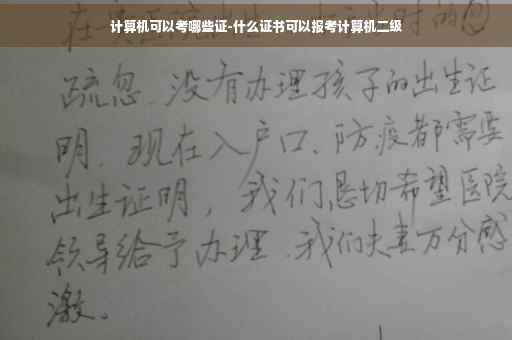 计算机可以考哪些证-什么证书可以报考计算机二级
疏忽、没有办理孩子的出生证
明、现在入户口、防疫都需要
出生证明，我们恳切希望医院
领导给予办理、我们夫妻万分感
激。